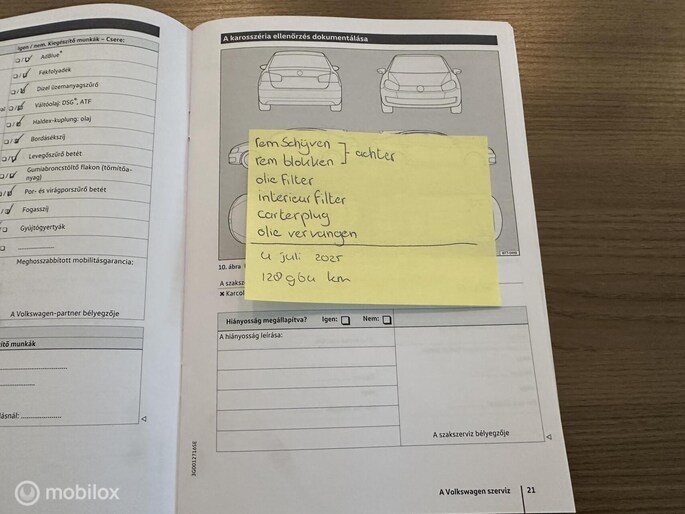 Igen / nem. Kiegészítő munkák – Csere:
AdBlue®
Fékfolyadék
Dízel üzemanyagszűrő
Váltóolaj: DSG®, ATF
Haldex-kuplung: olaj
Bordásékszíj
Levegőszűrő betét
Gumiabroncstöltő flakon (tömítőa-
nyag)
Por- és virágporszűrő betét
Fogasszíj
Gyújtógyertyák
Meghosszabbított mobilitásgarancia:
A Volkswagen-partner bélyegzője
A karosszéria ellenőrzés dokumentálása
rem Schijven
rem blokken
achter
olie filter
interieur filter
carterplug
olie vervangen
4 juli 2025
10. ábra
A szaksz
Karcol
Hiányosság megállapítva? Igen: Nem:
A hiányosság leírása:
A szakszerviz bélyegzője
A Volkswagen szerviz 21
mobilox